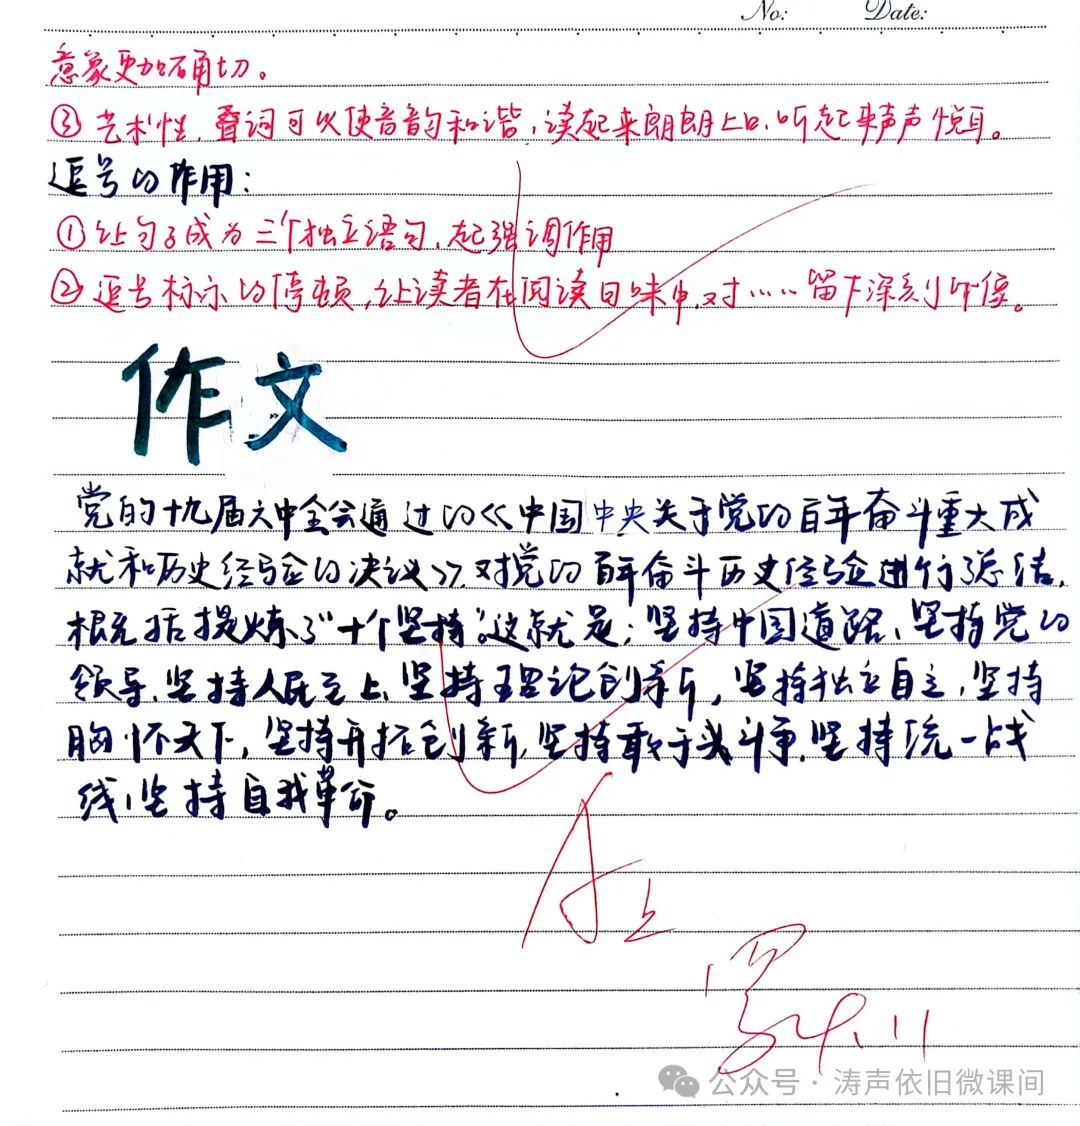 No:    Date:
意象更加确切。
③艺术性,叠词可以使音韵和谐,读起来朗朗上口,听起来声声悦耳。
逗号的作用:
①让句子成为三个独立语句,起强调作用
②逗号标示的停顿,让读者在阅读回味中,对……留下深刻印象。
作文
党的十九届六中全会通过的《中国中央关于党的百年奋斗重大成
就和历史经验的决议》,对党的百年奋斗历史经验进行总结,
概括提炼了"十个坚持"。这就是:坚持中国道路、坚持党的
领导、坚持人民至上、坚持理论创新,坚持独立自主,坚持
胸怀天下,坚持开拓创新,坚持敢于斗争,坚持统一战
线,坚持自我革命。
A上
9.11
公众号·涛声依旧微课间